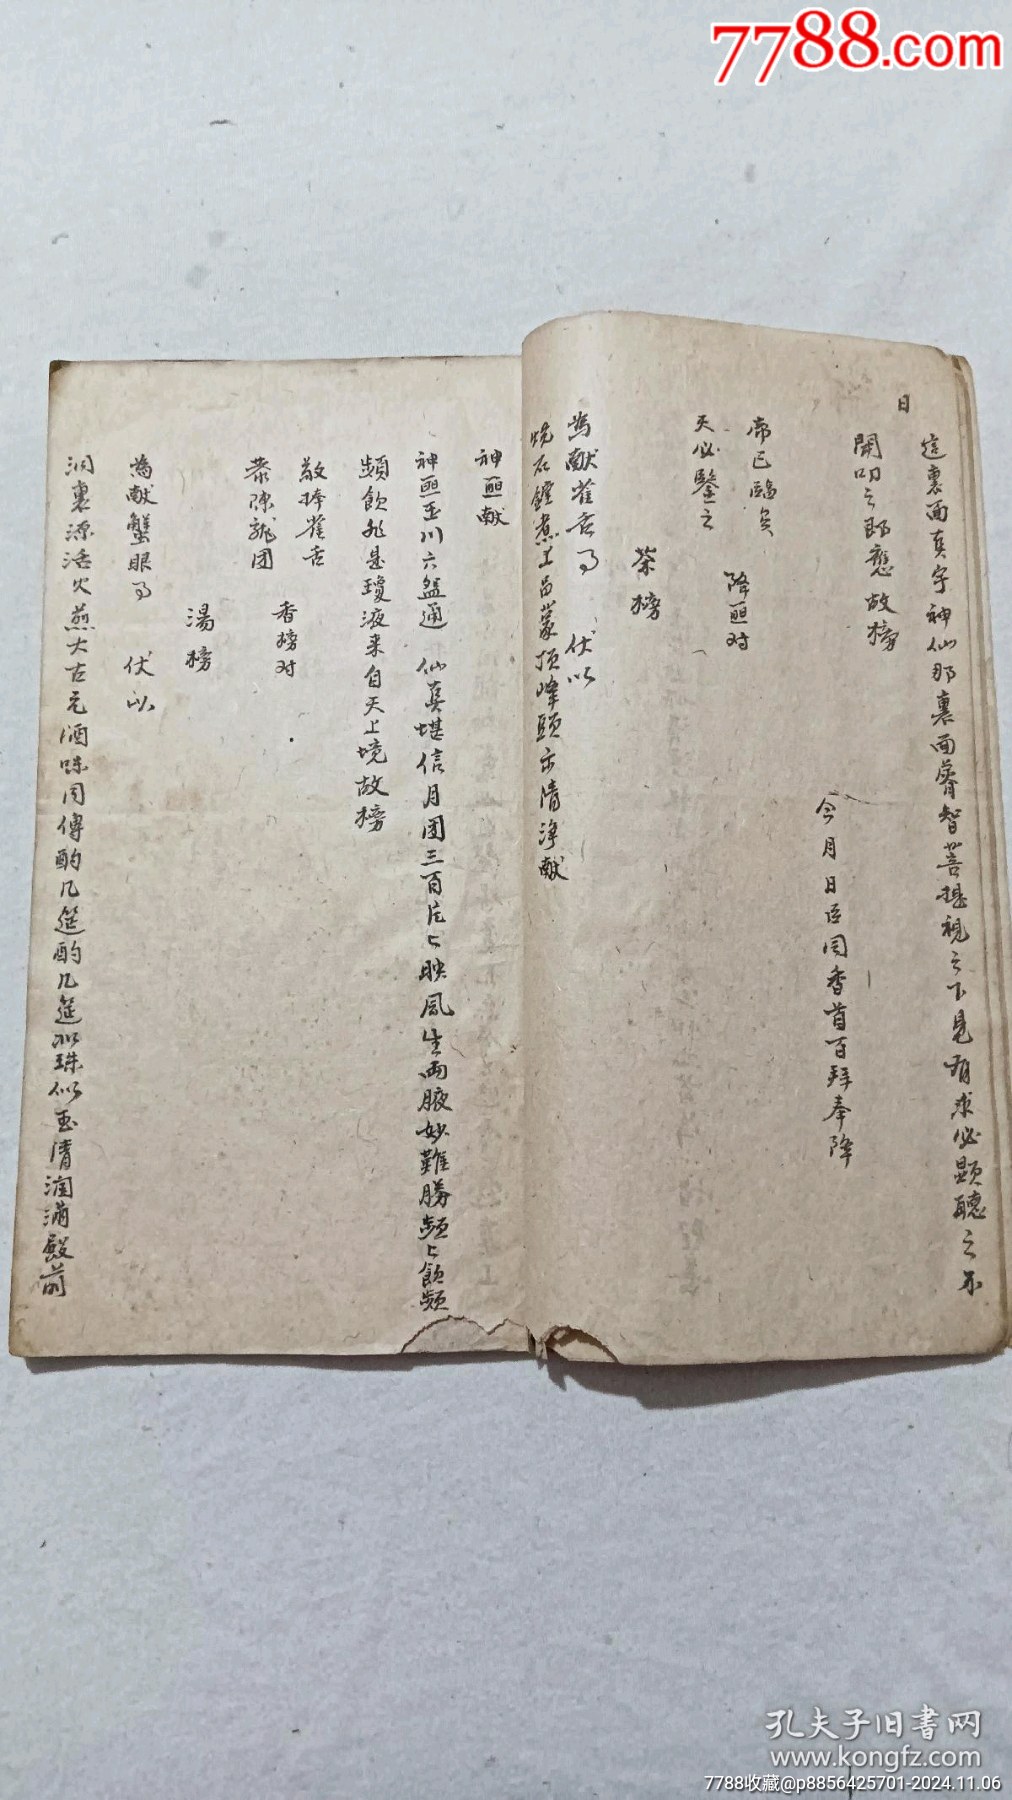 7788.com
日
這裏面真宇神仙那裏面睿智菩提視之不見有求必顯聽之不
聞叩之即應故榜
今月日臣同香首百拜奉降
帝已臨矣
降聖对
天必鑒之
茶榜
為獻雀舌 伏以
燒石鐺煮土蒙頂峰頭示清淨献
神 献
神 玉川六盌通仙真堪信月团三百片〻映風生兩腋妙難勝頻〻飲頻
頻飲 是瓊液来自天上境故榜
敬捧雀舌
香榜对
恭陈龍团
湯榜
為献蟹眼 伏以
洞裏源活火煎大古元酒味同傳酌几筵酌几筵如珠似玉清润滿殿前
孔夫子旧書网
www.kongfz.com
7788收藏@p8856425701-2024.11.06